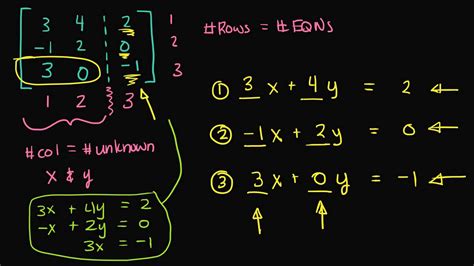 3 4 2 1
-1 2 0 2
3 0 -1 3
1 2 3
#col = #unknown
x & y
3x + 4y = 2
-x + 2y = 0
3x = -1
#Rows = #EQNs
① 3x + 4y = 2
② -1x + 2y = 0
③ 3x + 0y = -1